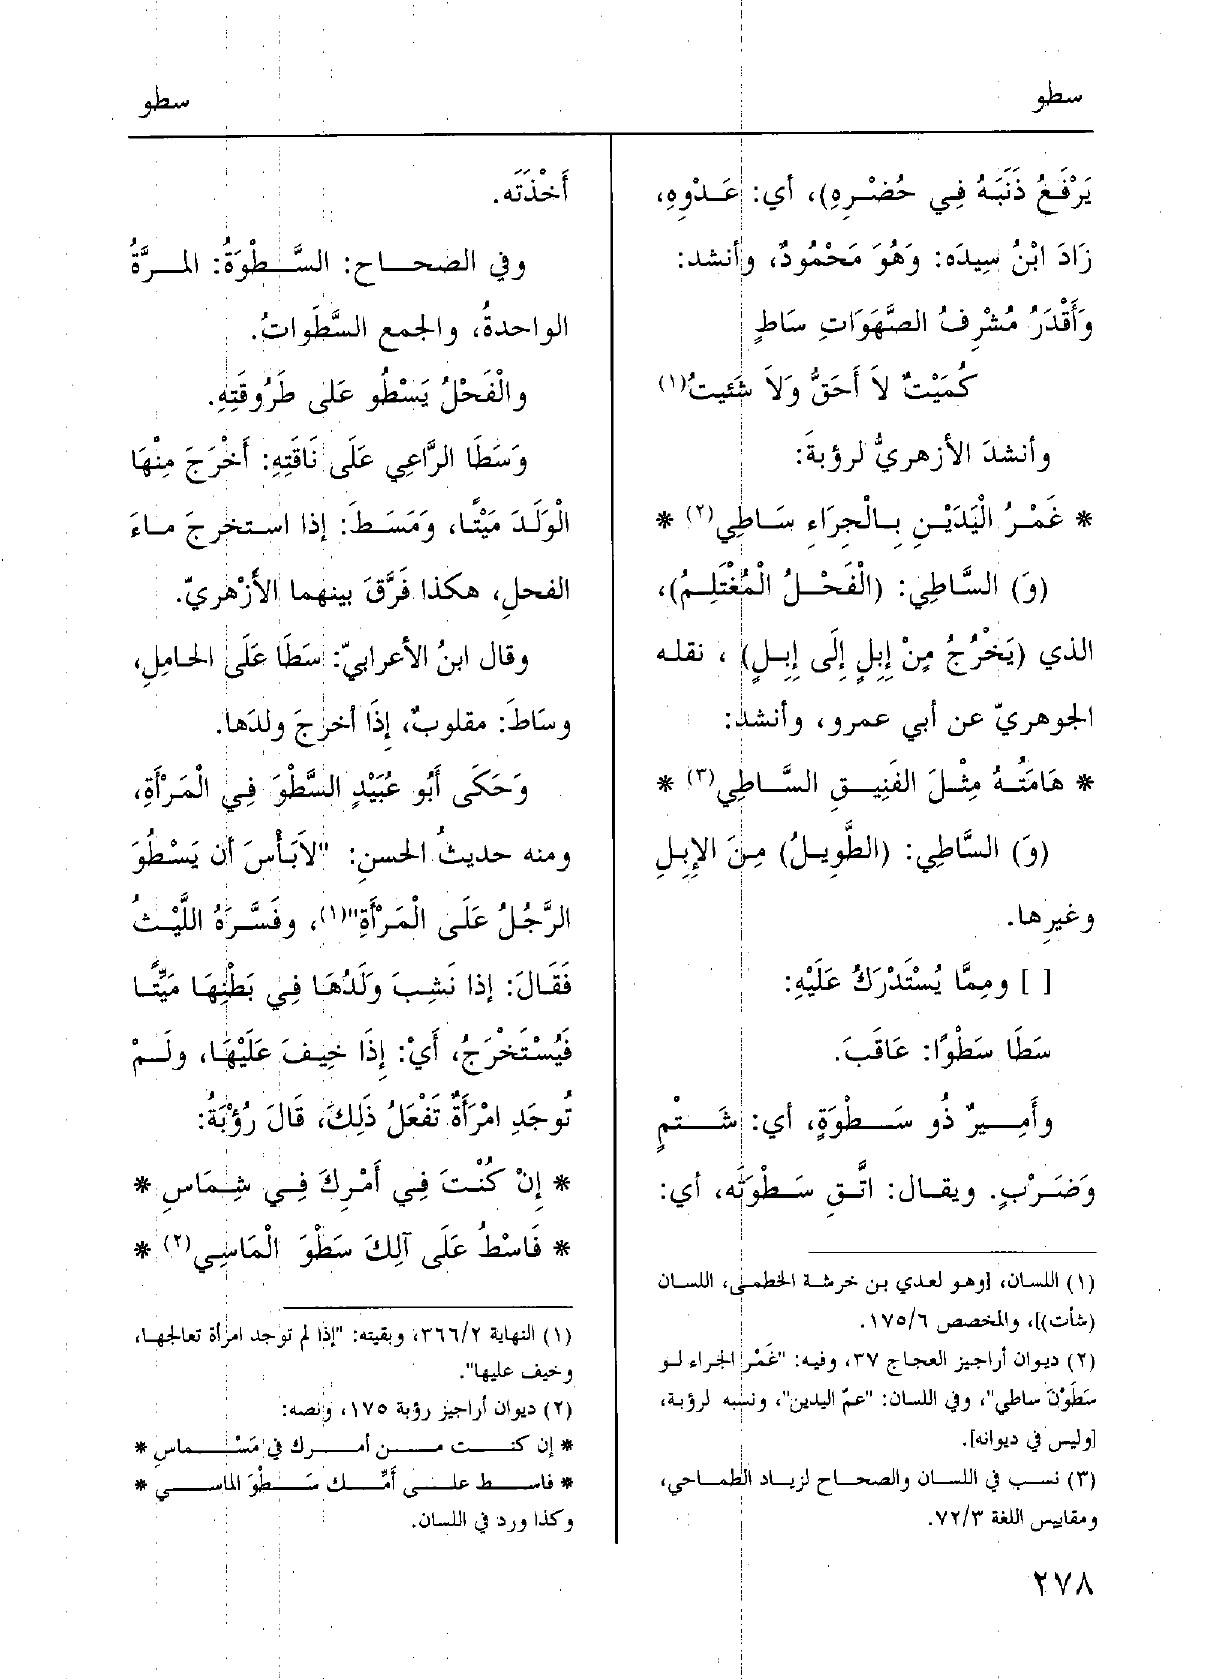 سطو
سطو
يَرْفَعُ ذَنَبَهُ فِي حُضْرِهِ)، أي: عَدْوِهِ،
زَادَ ابْنُ سِيدَه: وَهُوَ مَحْمُودٌ، وأنشد:
وَأَقْدَرُ مُشْرِفُ الصَّهَوَاتِ سَاطٍ
كُمَيْتٌ لاَ أَحَقُّ وَلاَ شَئيتُ(١)
وأنشدَ الأزهريُّ لرؤبةَ:
* غَمْرُ الْيَدَيْنِ بِالْجِرَاءِ سَاطِي(٢) *
(وَ) السَّاطِي: (الْفَحْلُ الْمُغْتَلِمُ)،
الذي (يَخْرُجُ مِنْ إِبِلٍ إِلَى إِبِلٍ) ، نقله
الجوهريّ عن أبي عمرو، وأنشد:
* هَامَتُهُ مِثْلَ الفَنِيقِ السَّاطِي(٣) *
(وَ) السَّاطِي: (الطَّوِيلُ) مِنَ الإِبِلِ
وغيرِها.
[ ] ومِمَّا يُسْتَدْرَكُ عَلَيْهِ:
سَطَا سَطْوًا: عَاقَبَ.
وأَمِيرٌ ذُو سَطْوَةٍ، أي: شَتْمٍ
وَضَرْبٍ. ويقال: اتَّقِ سَطْوَتَه، أي:
(١) اللسان، [وهو لعدي بن خرشة الخطمى، اللسان
(شأت)]، والمخصص ١٧٥/٦.
(٢) ديوان أراجيز العجاج ٣٧، وفيه: "غَمْر الجراء لو
سَطَوْنَ ساطي"، وفي اللسان: "عمّ اليدين"، ونسبه لرؤبة،
[وليس في ديوانه].
(٣) نسب في اللسان والصحاح لزياد الطماحي،
ومقاييس اللغة ٧٢/٣.
أَخْذَتَه.
وفي الصحاح: السَّطْوَةُ: المرَّةُ
الواحدةُ، والجمع السَّطَوات.
والْفَحْلُ يَسْطُو عَلى طَرُوقَتِهِ.
وَسَطَا الرَّاعِي عَلَى نَاقَتِهِ: أَخْرَجَ مِنْهَا
الْوَلَدَ مَيْتًا، وَمَسَطَ: إذا استخرجَ ماءَ
الفحلِ، هكذا فَرَّقَ بينهما الأَزْهريّ.
وقال ابنُ الأعرابيّ: سَطَا عَلَى الحامِلِ،
وسَاطَ: مقلوبٌ، إِذَا أخرجَ ولدَها.
وَحَكَى أَبُو عُبَيْدٍ السَّطْوَ فِي الْمَرْأَةِ،
ومنه حديثُ الحسنِ: "لاَبَأْسَ أن يَسْطُوَ
الرَّجُلُ عَلَى الْمَرْأَةِ"(١)، وفَسَّرَهُ اللَّيْثُ
فَقَالَ: إذا نَشِبَ وَلَدُهَا فِي بَطْنِهَا مَيِّتًا
فَيُسْتَخْرَجُ، أَيْ: إِذَا خِيفَ عَلَيْهَا، ولَمْ
تُوجَدِ امْرَأَةٌ تَفْعَلُ ذَلِكَ، قَالَ رُؤْبَةُ:
* إِنْ كُنْتَ فِي أَمْرِكَ فِي شِمَاسِ *
* فَاسْطُ عَلَى آلِكَ سَطْوَ الْمَاسِي(٢) *
(١) النهاية ٣٦٦/٢، وبقيته: "إذا لم توجد امرأة تعالجها،
وخيف عليها".
(٢) ديوان أراجيز رؤبة ١٧٥، ونصه:
* إن كنت من أمرك في مَسْماسِ *
* فاسط على أُمِّك سَطْوَ الماسي *
وكذا ورد في اللسان.
٢٧٨